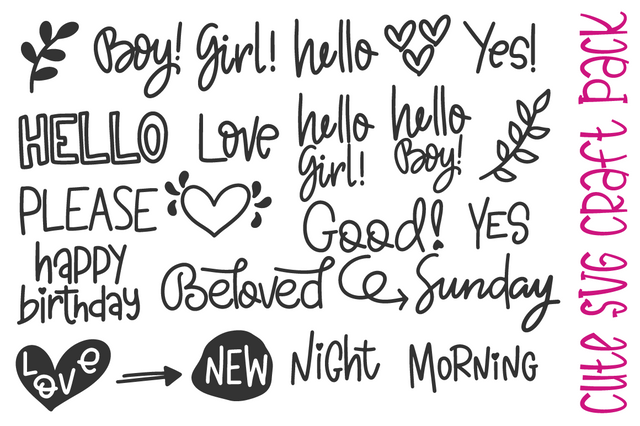 Boy! Girl! hello Yes!
HELLO Love hello Girl! hello Boy!
PLEASE
Good! YES
happy birthday
Beloved Sunday
Love NEW Night MORNING
Cute SVG Craft Pack